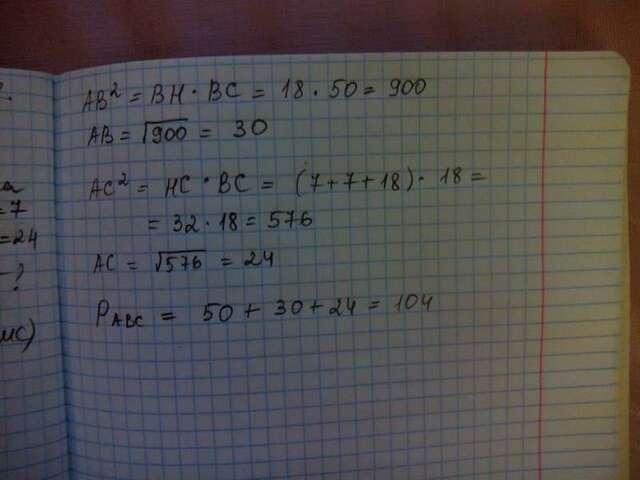 AB² = BH · BC = 18 · 50 = 900
AB = √900 = 30
AC² = HC · BC = (7+7+18) · 18 =
= 32 · 18 = 576
=7
=24
AC = √576 = 24
— ?
P_ABC = 50 + 30 + 24 = 104